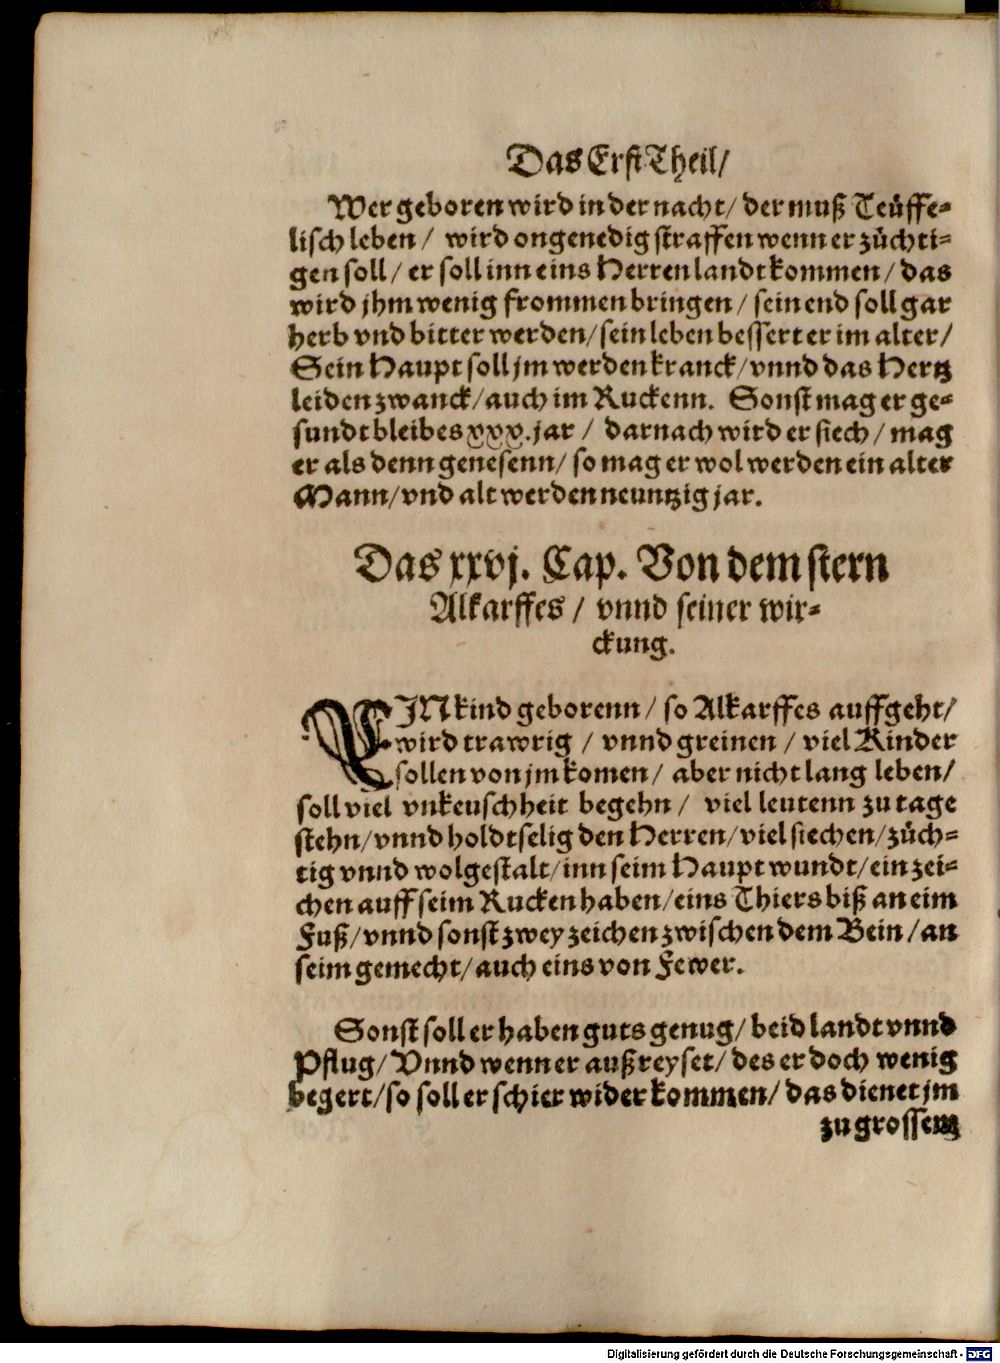 Das Erst Theil/
Wer geboren wird in der nacht/ der muß Teüffe-
lisch leben/ wird ongenedig straffen wenn er züchti-
gen soll/ er soll inn eins Herren landt kommen/ das
wird jhm wenig frommen bringen/ sein end soll gar
herb vnd bitter werden/ sein leben bessert er im alter/
Sein Haupt soll jm werden kranck/ vnnd das Hertz
leiden zwanck/ auch im Ruckenn. Sonst mag er ge-
sundt bleibes xxx. jar/ darnach wird er siech/ mag
er als denn genesenn/ so mag er wol werden ein alter
Mann/ vnd alt werden neuntzig jar.
Das xxvj. Cap. Von dem stern
Alkarffes/ vnnd seiner wir-
ckung.
EIN kind geborenn/ so Alkarffes auffgeht/
wird trawrig/ vnnd greinen/ viel Kinder
sollen von jm komen/ aber nicht lang leben/
soll viel vnkeuschheit begehn/ viel leutenn zu tage
stehn/ vnnd holdtselig den Herren/ viel siechen/ züch-
tig vnnd wolgestalt/ inn seim Haupt wundt/ ein zei-
chen auff seim Rucken haben/ eins Thiers biß an eim
Fuß/ vnnd sonst zwey zeichen zwischen dem Bein/ an
seim gemecht/ auch eins von Fewer.
Sonst soll er haben guts genug/ beid landt vnnd
Pflug/ Vnnd wenn er außreyset/ des er doch wenig
begert/ so soll er schier wider kommen/ das dienet jm
zu grossem
Digitalisierung gefördert durch die Deutsche Forschungsgemeinschaft - DFG